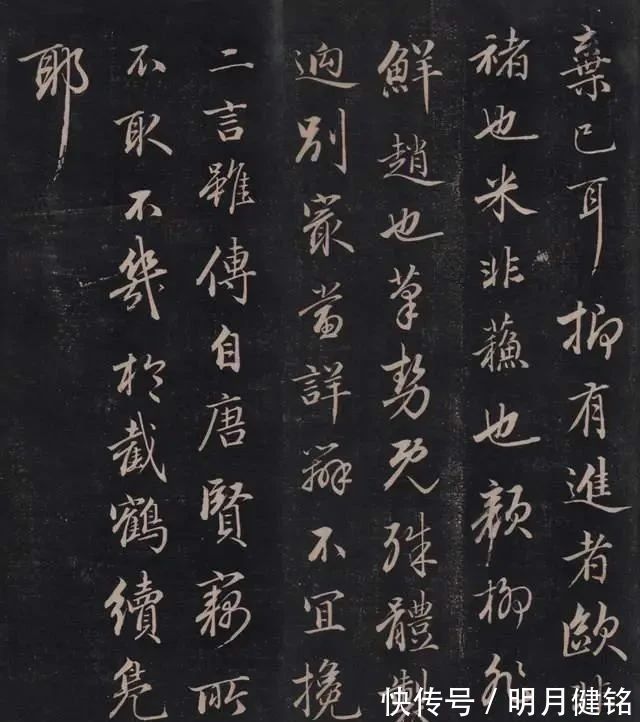 棄已耳抑有進者歐非
褚也米非蘓也顏柳非
鮮趙也筆勢既殊體製
迥別冣當詳辯不宜攙
二言雖傳自唐賢竊所
不取不幾於截鶴續鳧
耶
快传号 / 明月健铭